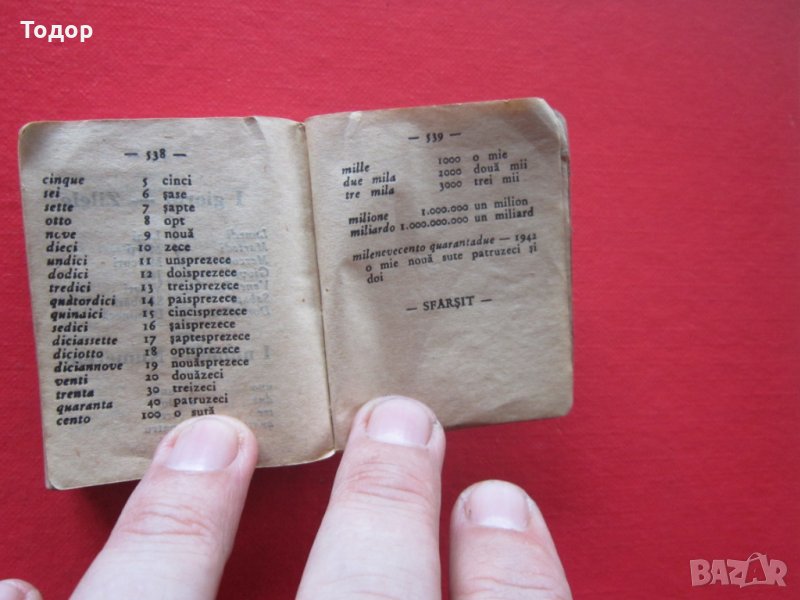 Todop
— 538 —
cinque 5 cinci
sei 6 șase
sette 7 șapte
otto 8 opt
nove 9 nouă
dieci 10 zece
undici 11 unsprezece
dodici 12 doisprezece
tredici 13 treisprezece
quàtordici 14 paisprezece
quindici 15 cincisprezece
sedici 16 șaisprezece
diciassette 17 șaptesprezece
diciotto 18 optsprezece
diciannove 19 nouăsprezece
venti 20 douăzeci
trenta 30 treizeci
quaranta 40 patruzeci
cento 100 o sută
— 539 —
mille 1000 o mie
due mila 2000 două mii
tre mila 3000 trei mii
milione 1.000.000 un milion
miliardo 1.000.000.000 un miliard
milenevecento quarantadue — 1942
o mie nouă sute patruzeci și
doi
— SFÂRȘIT —
BAZAR